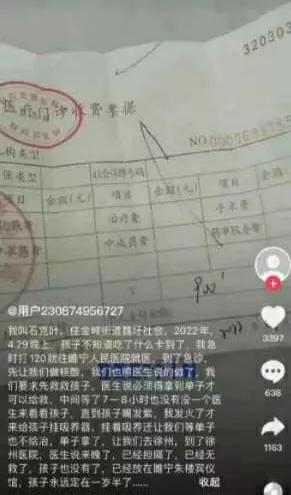 320303
医疗门诊收费票据
NO
机构类型
社会保障号码
金额(元)
项目
金额(元)
项目
治疗费
手术费
中成药费
药事服务费
@用户230874956727
我叫石克叶，住金城街道魏圩社会，2022年，
4.29晚上。孩子不知道吃了什么卡到了，我急
时打120就往睢宁人民医院就医，到了急诊，
先让我们做核酸，我们也照医生说的做了，我
们要求先救救孩子，医生说必须得拿到单子才
可以给救，中间等了7一8小时也没有没一个医
生来看看孩子，直到孩子嘴发紫，我发火了才
来给孩子挂吸养器，挂着吸养还让我们等单子
也不给治，单子拿了，让我们去徐州，到了徐
州医院，医生说来晚了，已经担隔了，已经无
救了，孩子也没有了，已经放在睢宁朱楼宾仪
馆，孩子永远定在一岁半了......
收起
3397
636
238